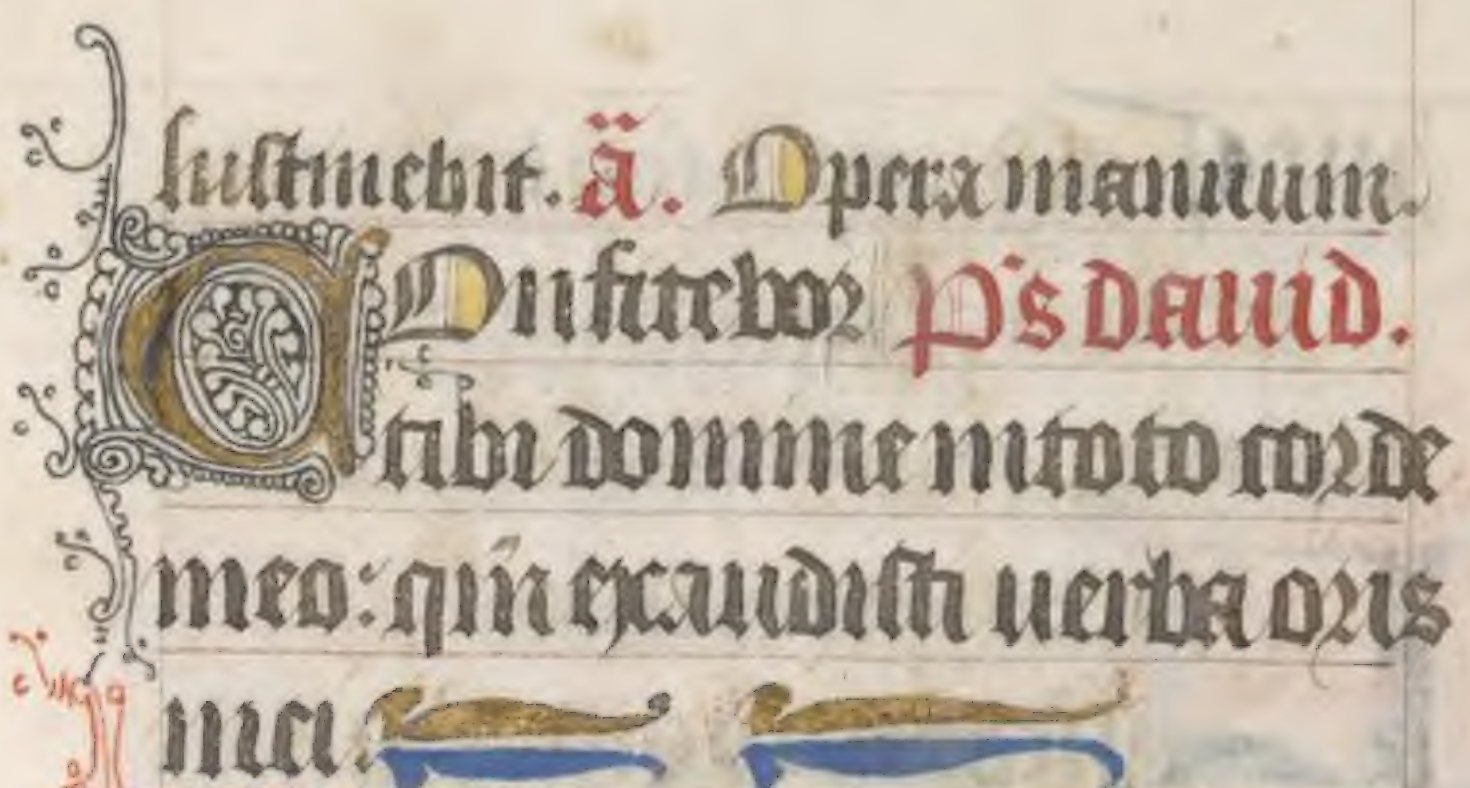 sustinebit. ā. Opera manuum.
COnfitebor Ps dauid.
tibi domine in toto corde
meo: qm̄ exaudisti uerba oris
mei.